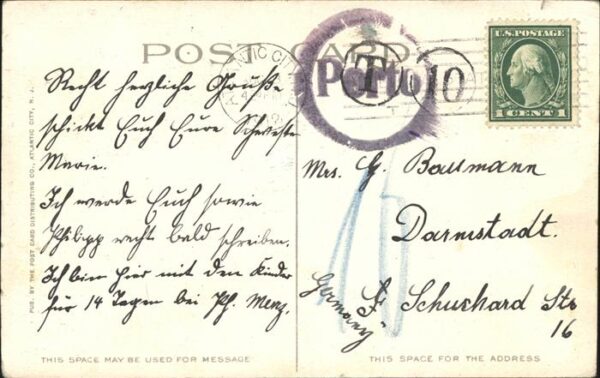 POST CARD
ATLANTIC CITY
Porto
T
10
U.S. POSTAGE
1 CENT 1
Recht herzliche Grüße
schickt Euch Eure Schwester
Marie.
Ich werde Euch sowie
Philipp recht bald schreiben.
Ich bin hier mit den Kinder
für 14 Tagen bei Ph. Menz.
Mrs. G. Baumann
Darmstadt.
Schuchard Str
16
Germany
PUB. BY THE POST CARD DISTRIBUTING CO., ATLANTIC CITY, N. J.
THIS SPACE MAY BE USED FOR MESSAGE
THIS SPACE FOR THE ADDRESS